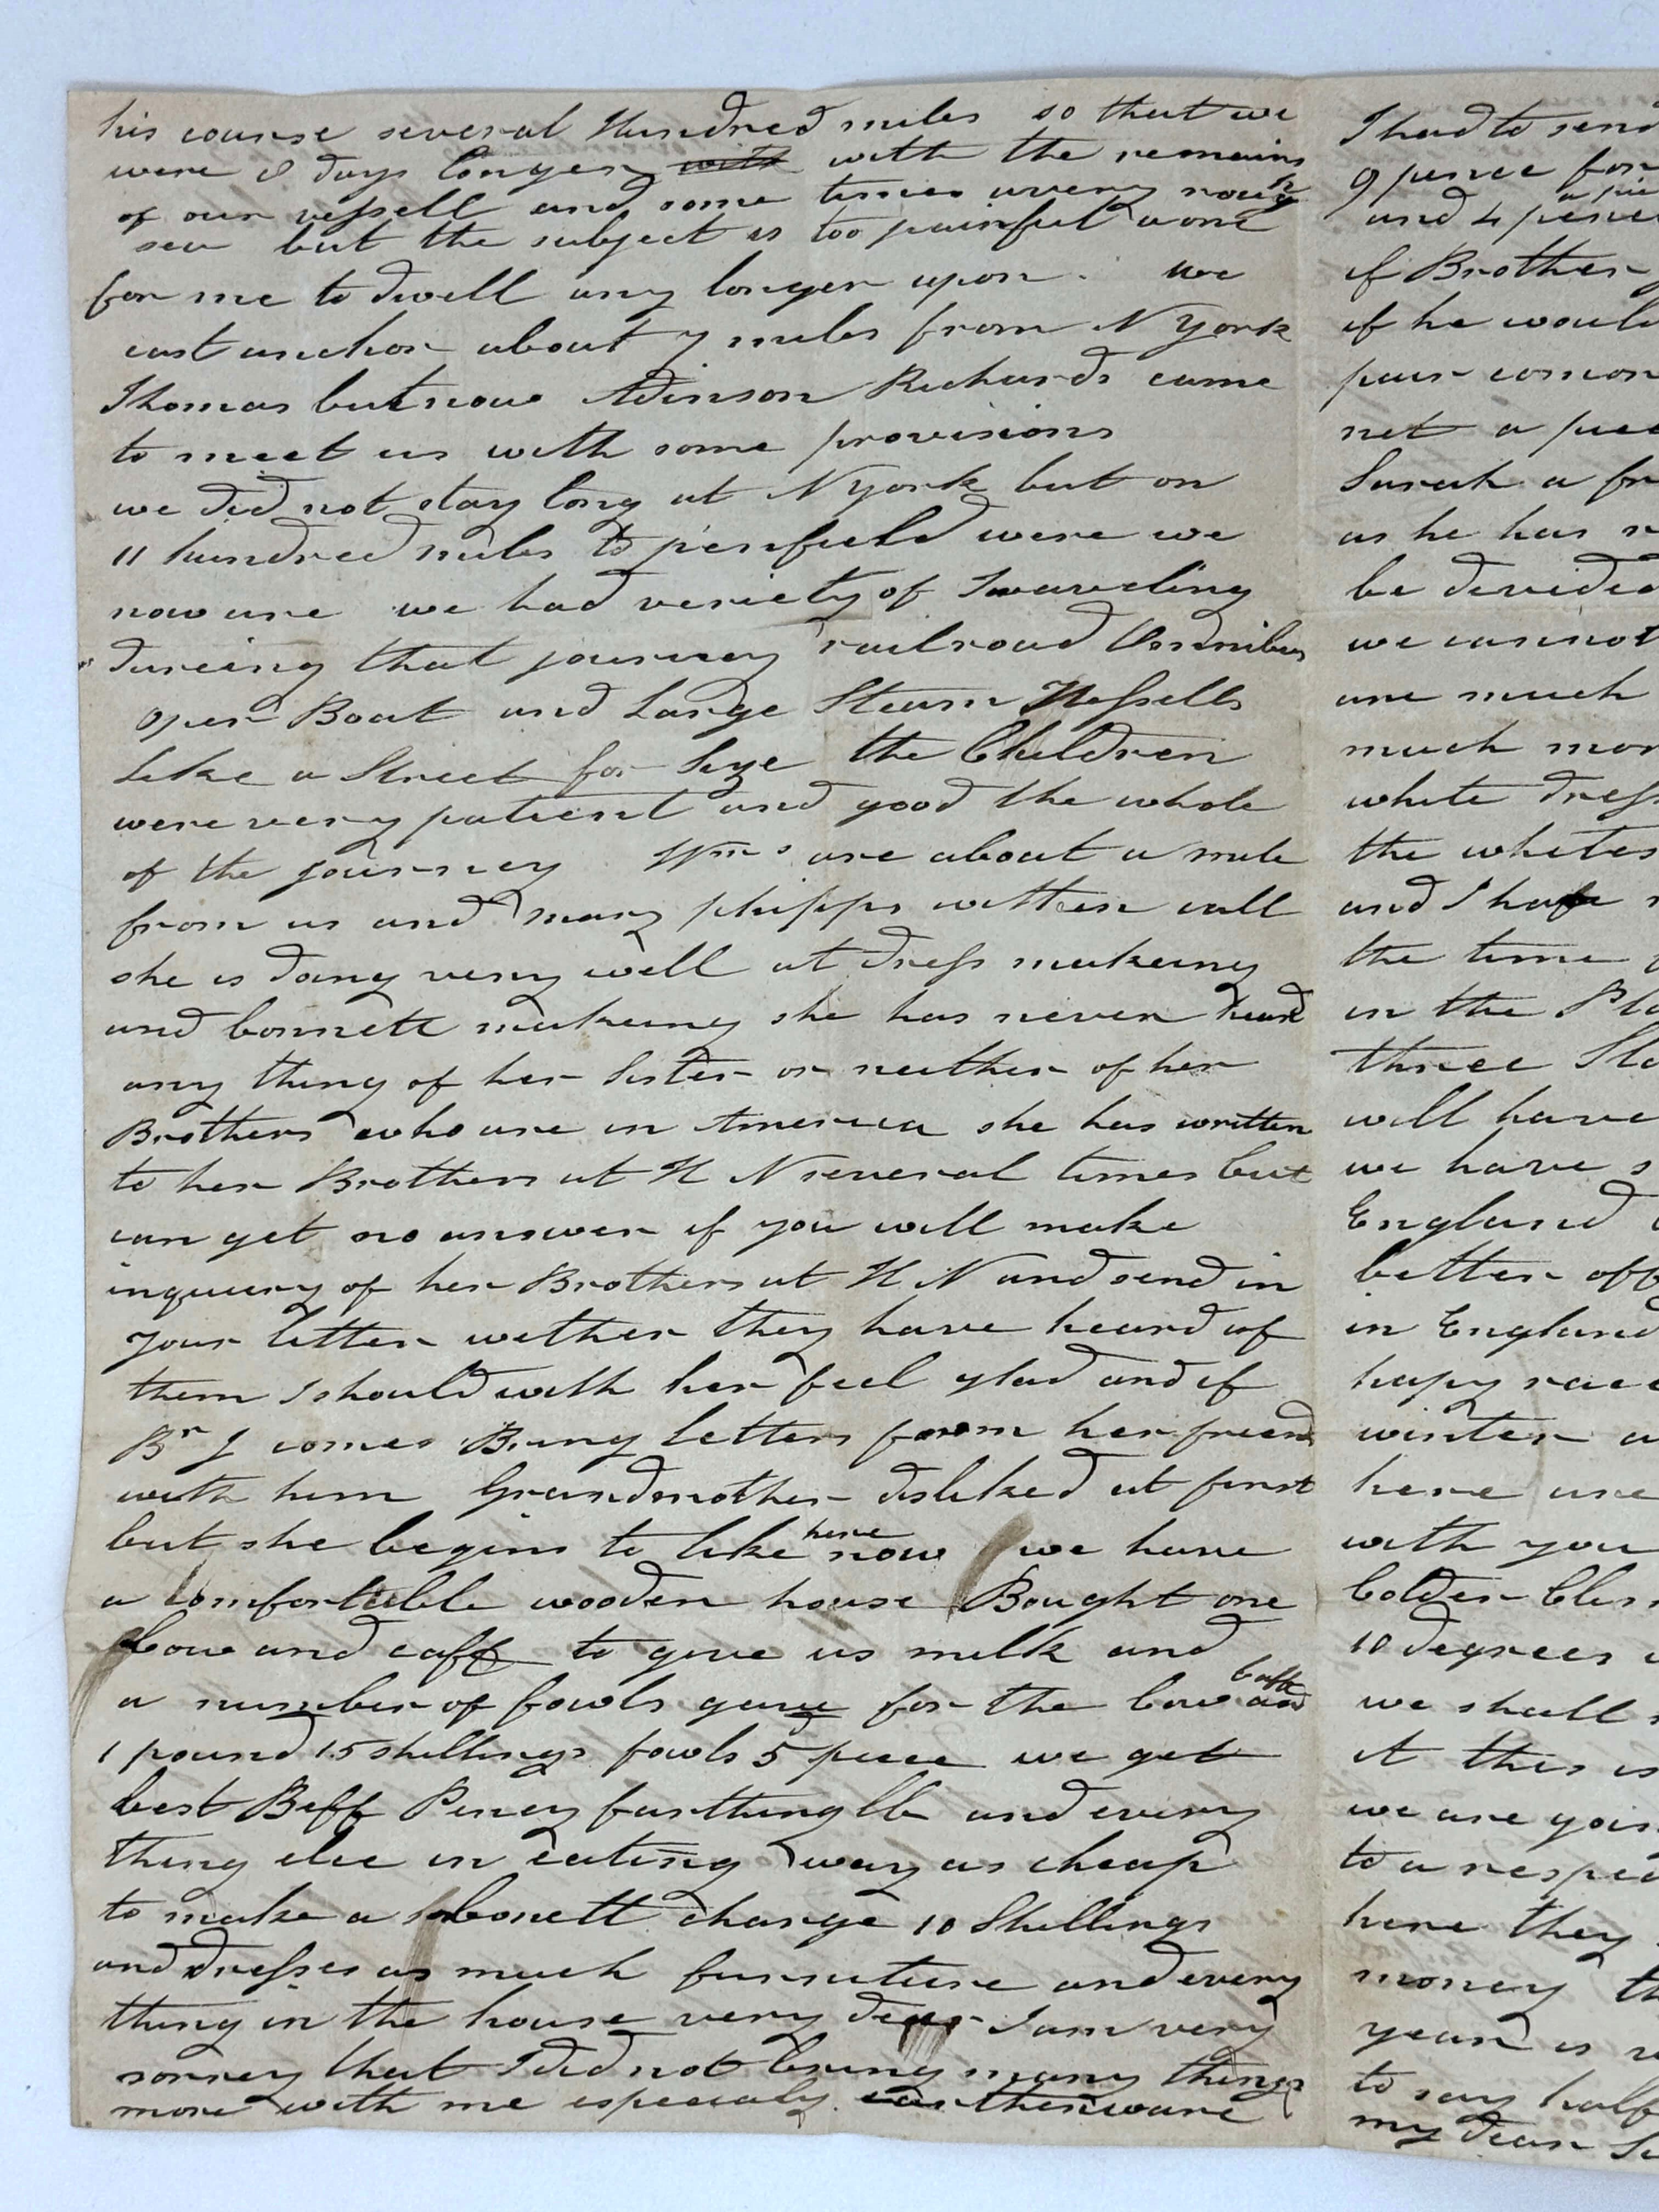 his course several Hundred miles so that we
were 8 days longer with with the remains
of our vessell and some times avery rough
sea but the subject is too painful aone
for me to dwell any longer upon. we
cast anchor about 7 miles from N York
Thomas but now Adinson Richards came
to meet us with some provisions
we did not stay long at N york but on
11 hundred miles to penfield were we
now are we had veriety of Traveling
dureing that journey railroad Omnibus
open Boat and Large Steam Vessells
like a Street for Size the Children
were very patient and good the whole
of the journey Wm s are about a mile
from us and mary phipps within call
she is doing very well at dress makeing
and bonnett makeing she has never heard
any thing of her Sister or neither of her
Brothers who are in America she has written
to her Brothers at H N several times but
can get no answer if you will make
inquiery of her Brothers at H N and send in
your letter wether they have heard of
them I should with her feel glad and if
Br J comes Bring letters from her friend
with him Grandmother disliked at first
but she begins to like here now we have
a Comfortable wooden house Bought one
Cow and caff to give us milk and
a number of fowls gave for the Cow and Caff
1 pound 15 shillings fowls 5 piece we get
best Beff Peney farthing lb and every
thing else in eating way as cheap
to make a bonett charge 10 Shillings
and dresses as much furnuture and every
thing in the house very dear I am very
sorrey that I did not bring many things
more with me especialy earthenware
I had to send
9 pence for
and 4 pence
if Brother J
if he would
pair comon
net a piec
Sarah a fr
as he has
be devided
we cannot
are much
much mor
white dress
the whites
and I have
the time
in the Pla
three Sto
will have
we have s
England
better off
in England
hapy race
winter a
here are
with you
Colder Clim
10 degrees
we shall
it this is
we are goin
to a respec
here they
money th
year is
to say half
my dear Si